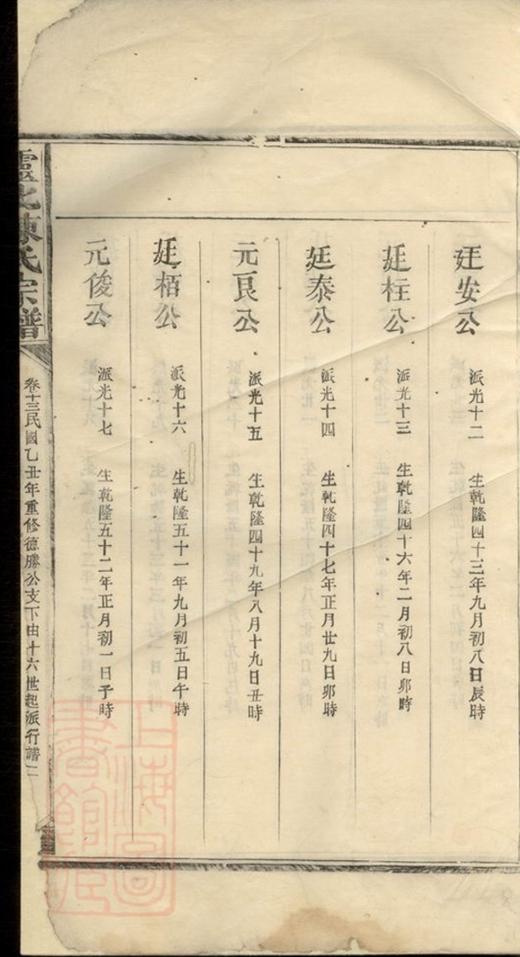 廷安公 派光十二 生乾隆四十三年九月初八日辰時
廷柱公 派光十三 生乾隆四十六年二月初八日卯時
廷泰公 派光十四 生乾隆四十七年正月廿九日卯時
元良公 派光十五 生乾隆四十九年八月十九日丑時
廷栢公 派光十六 生乾隆五十一年九月初五日午時
元俊公 派光十七 生乾隆五十二年正月初一日子時
陳氏宗譜
卷十三民國乙丑年重修德勝公支下由十六世起派行譜二
上海圖書館藏